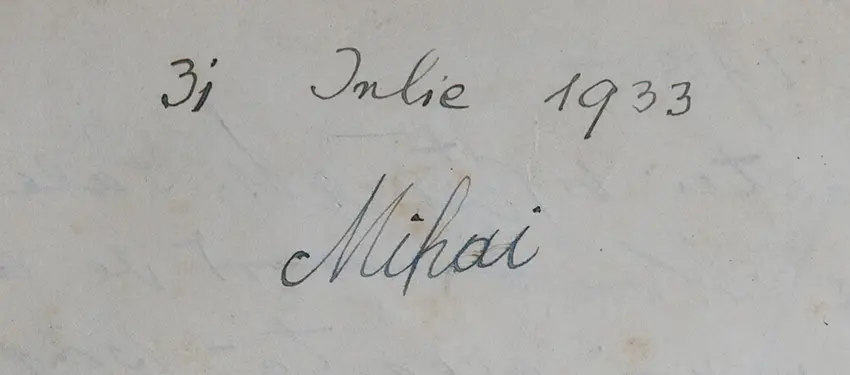 31 Iulie 1933
Mihai